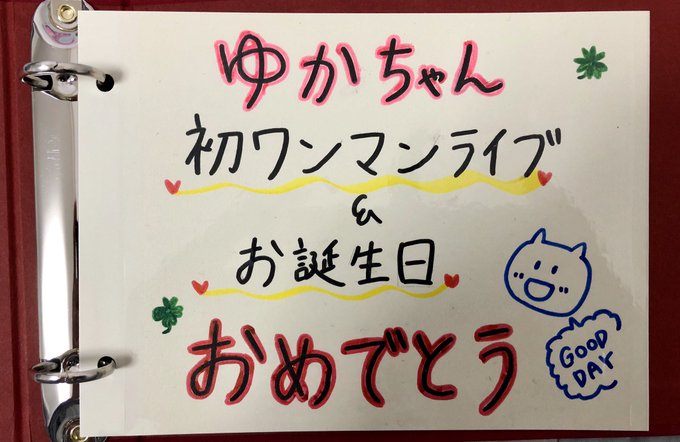 ゆかちゃん
初ワンマンライブ
&
お誕生日
おめでとう
GOOD
DAY